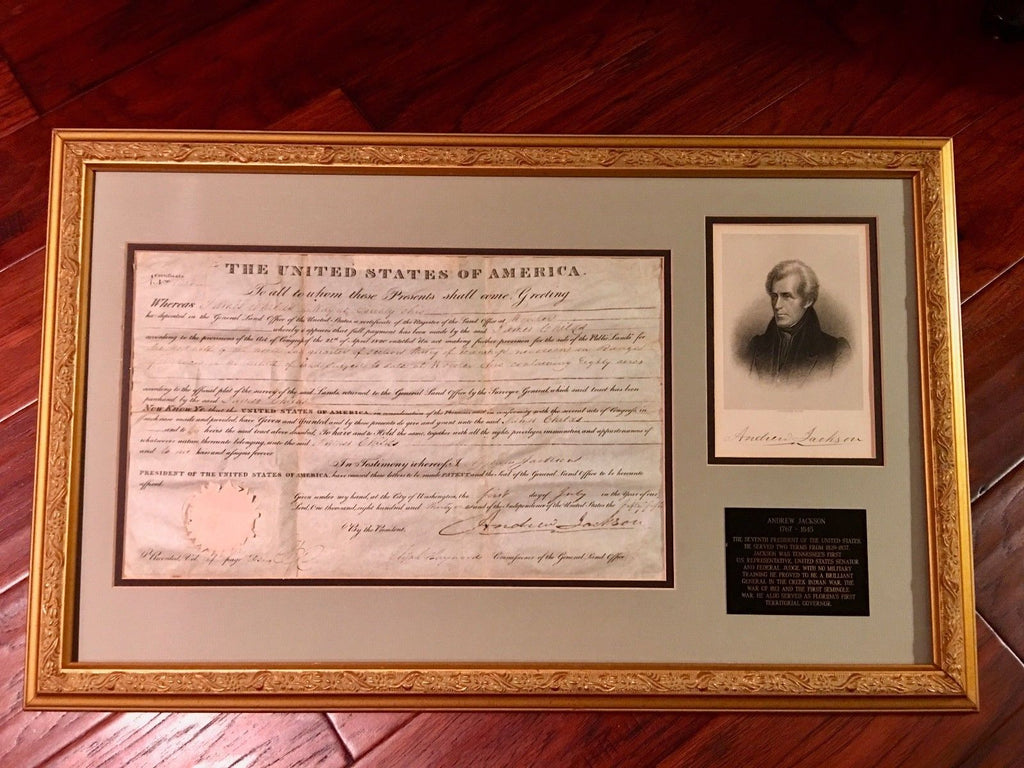 THE UNITED STATES OF AMERICA.
To all to whom these Presents shall come, Greeting
Whereas James Childs of Wayne County Ohio
has deposited in the General Land Office of the United States a certificate of the Register of the Land Office at Wooster
whereby it appears that full payment has been made by the said James Childs
according to the provisions of the Act of Congress of the 24th of April 1820 entitled "An act making further provision for the sale of the Public Lands" for
quarter of section thirty of township nineteen in Range
of lands subject to sale at Wooster Ohio containing Eighty acres
according to the official plat of the survey of the said Lands, returned to the General Land Office by the Surveyor General, which said tract has been
purchased by the said James Childs
Now Know Ye, that the UNITED STATES OF AMERICA, in consideration of the Premises and in conformity with the several acts of Congress, in
such case made and provided, have Given and Granted and by these presents do give and grant unto the said James Childs
and to his heirs the said tract above described; To have and to Hold the same, together with all the rights, privileges, immunities, and appurtenances of
whatsoever nature, thereunto belonging, unto the said James Childs
and to his heirs and assigns forever
In Testimony whereof, I Andrew Jackson
PRESIDENT OF THE UNITED STATES OF AMERICA, have caused these letters to be made PATENT and the Seal of the General Land Office to be hereunto
affixed.
Given under my hand, at the City of Washington, the first day of July in the Year of our
Lord one thousand eight hundred and thirty and of the Independence of the United States the fifty
By the President, Andrew Jackson
Commissioner of the General Land Office.
Andrew Jackson
ANDREW JACKSON
1767 - 1845
THE SEVENTH PRESIDENT OF THE UNITED STATES.
HE SERVED TWO TERMS FROM 1829-1837.
JACKSON WAS TENNESSEE'S FIRST
U.S. REPRESENTATIVE, UNITED STATES SENATOR
AND FEDERAL JUDGE. WITH NO MILITARY
TRAINING HE PROVED TO BE A BRILLIANT
GENERAL IN THE CREEK INDIAN WAR, THE
WAR OF 1812 AND THE FIRST SEMINOLE
WAR. HE ALSO SERVED AS FLORIDA'S FIRST
TERRITORIAL GOVERNOR.